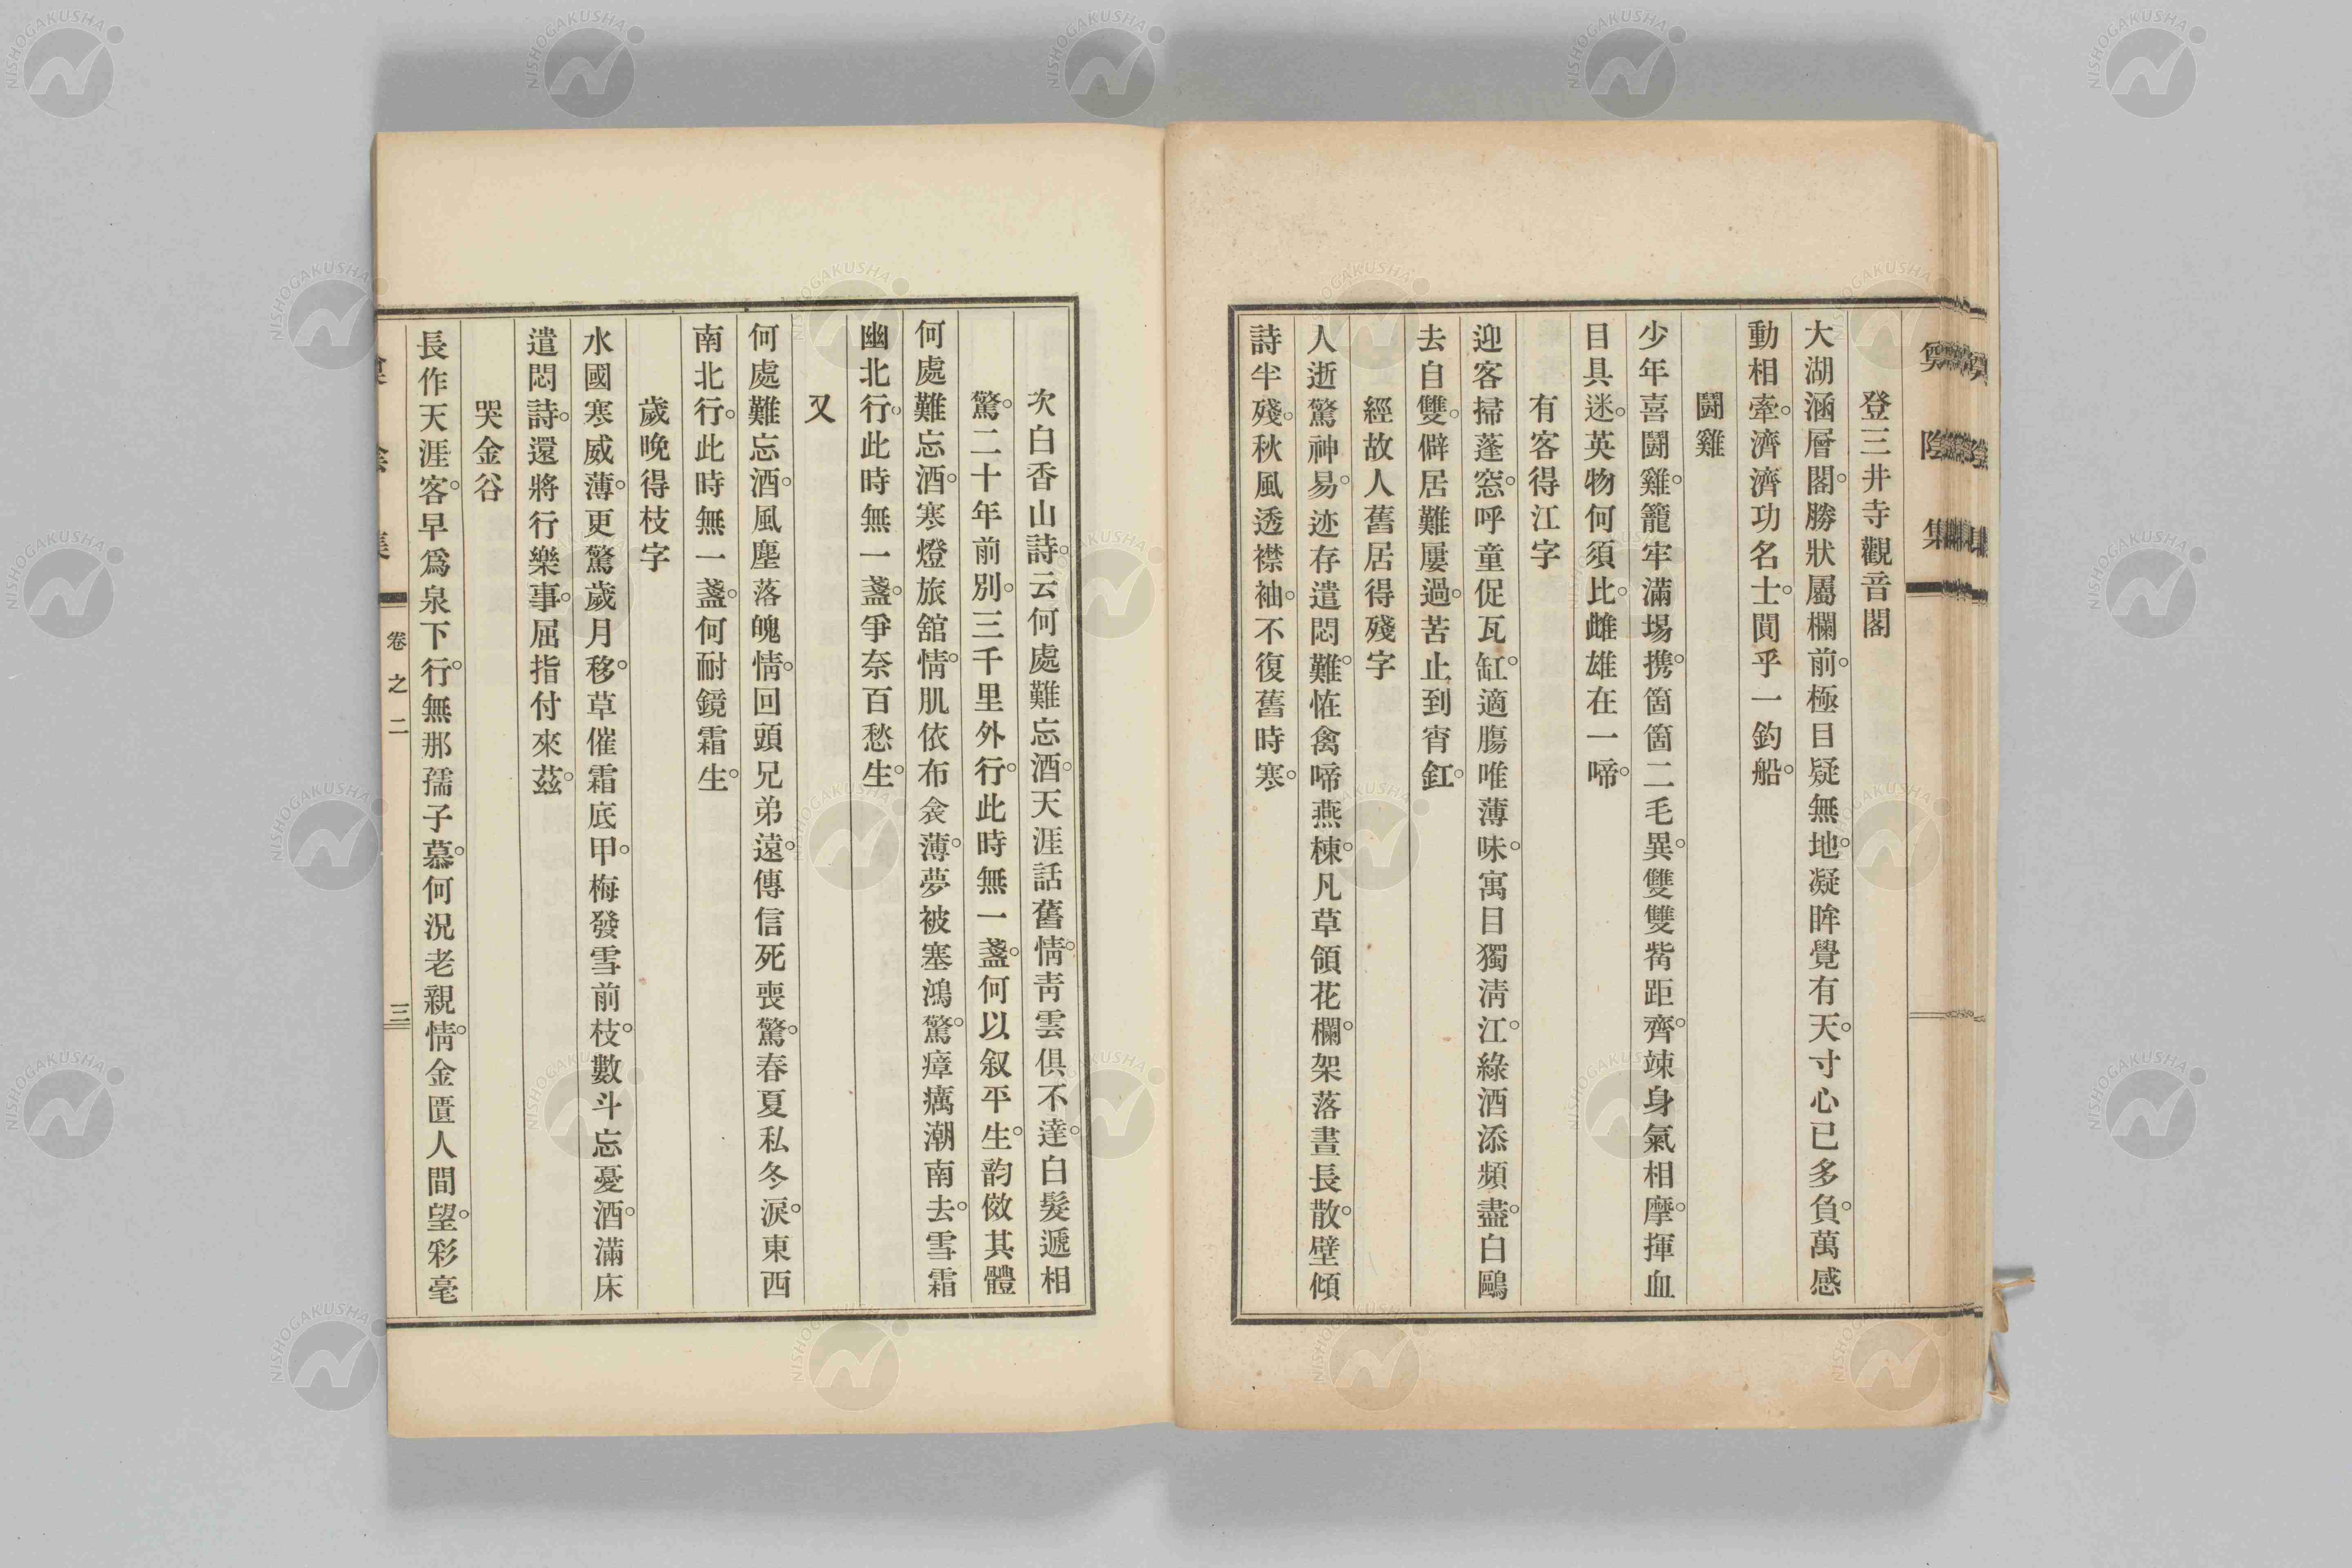 登三井寺觀音閣
大湖涵層閣。勝狀屬欄前。極目疑無地。凝眸覺有天。寸心已多負。萬感
動相牽。濟濟功名士。閴乎一釣船。
鬪雞
少年喜鬪雞。籠牢滿場携。箇箇二毛異。雙雙觜距齊。竦身氣相摩。揮血
目具迷。英物何須比。雌雄在一啼。
有客得江字
迎客掃蓬窓。呼童促瓦缸。適膓唯薄味。寓目獨淸江。綠酒添頻盡。白鷗
去自雙。僻居難屢過。苦止到宵釭。
經故人舊居得殘字
人逝驚神易。迹存遣悶難。恠禽啼燕棟。凡草領花欄。架落晝長散。壁傾
詩半殘。秋風透襟袖。不復舊時寒。
次白香山詩。云何處難忘酒。天涯話舊情。靑雲俱不達。白髮遞相
驚。二十年前別。三千里外行。此時無一盞。何以叙平生。韵傚其體
何處難忘酒。寒燈旅舘情。肌依布衾薄。夢被塞鴻驚。瘴癘潮南去。雪霜
幽北行。此時無一盞。爭奈百愁生。
又
何處難忘酒。風塵落魄情。回頭兄弟遠。傳信死喪驚。春夏私冬淚。東西
南北行。此時無一盞。何耐鏡霜生。
歲晚得枝字
水國寒威薄。更驚歲月移。草催霜底甲。梅發雪前枝。數斗忘憂酒。滿床
遣悶詩。還將行樂事。屈指付來茲。
哭金谷
長作天涯客。早爲泉下行。無那孺子慕。何況老親情。金匱人間望。彩毫
卷之二
三